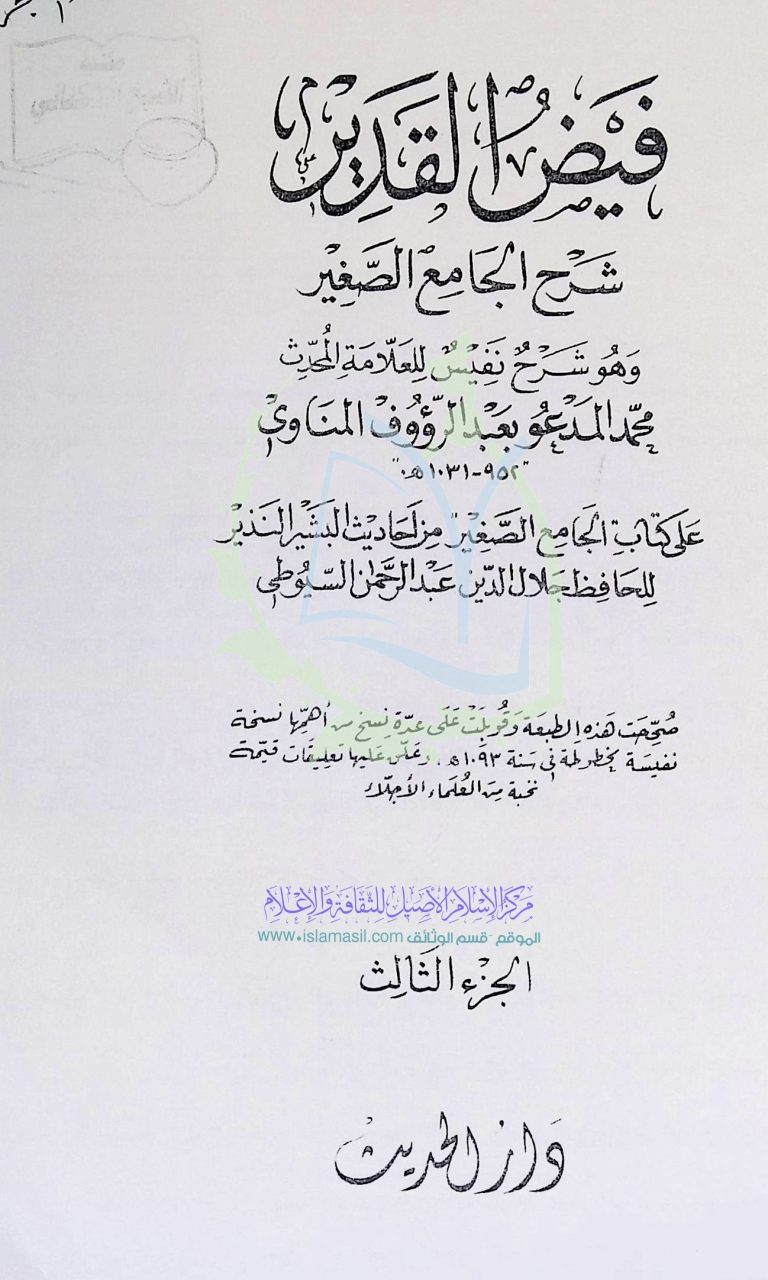 فَيضُ القَدِير
شَرَح الجَامِع الصَّغِير
وَهُو شَرَحٌ نَفِيسٌ لِلعَلّامَةِ المُحَدِّث
محمّد المَدعُو بعَبد الرَّؤُوف المنَاوي
"٩٥٢-١٠٣١ هـ"
عَلى كتَابِ الجَامِع الصَّغِير مِن أحَاديث البَشِير النَذير
لِلحَافِظ جَلال الدّين عَبد الرَّحمٰن السّيُوطي
صُحّحَت هَذِه الطبعَة وَقُوبلَتْ عَلَى عدّة نسَخ من أهمّها نسخة
نفيسَة مخطوطَة في سَنة ١٠٩٣ هـ، وعَلّق عَليها تعليقَات قيّمة
نخبة مِنَ العُلَماء الأجلّاء
مركز الإسلام الأصيل للثقافة والإعلام
الموقع - قسم الوثائق www.islamasil.com
الجزء الثَالِث
دَار الحَديث